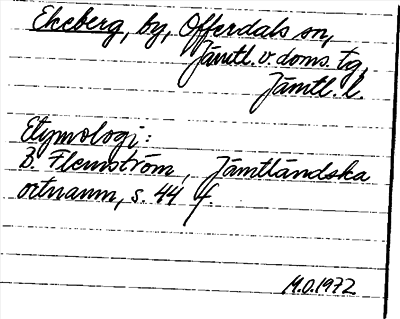 Ekeberg, by, Offerdals sn,
Jämtl. v. doms. tg,
Jämtl. l.
Etymologi:
B. Flemström, Jämtländska
ortnamn, s. 44 f.
M.O. 1972